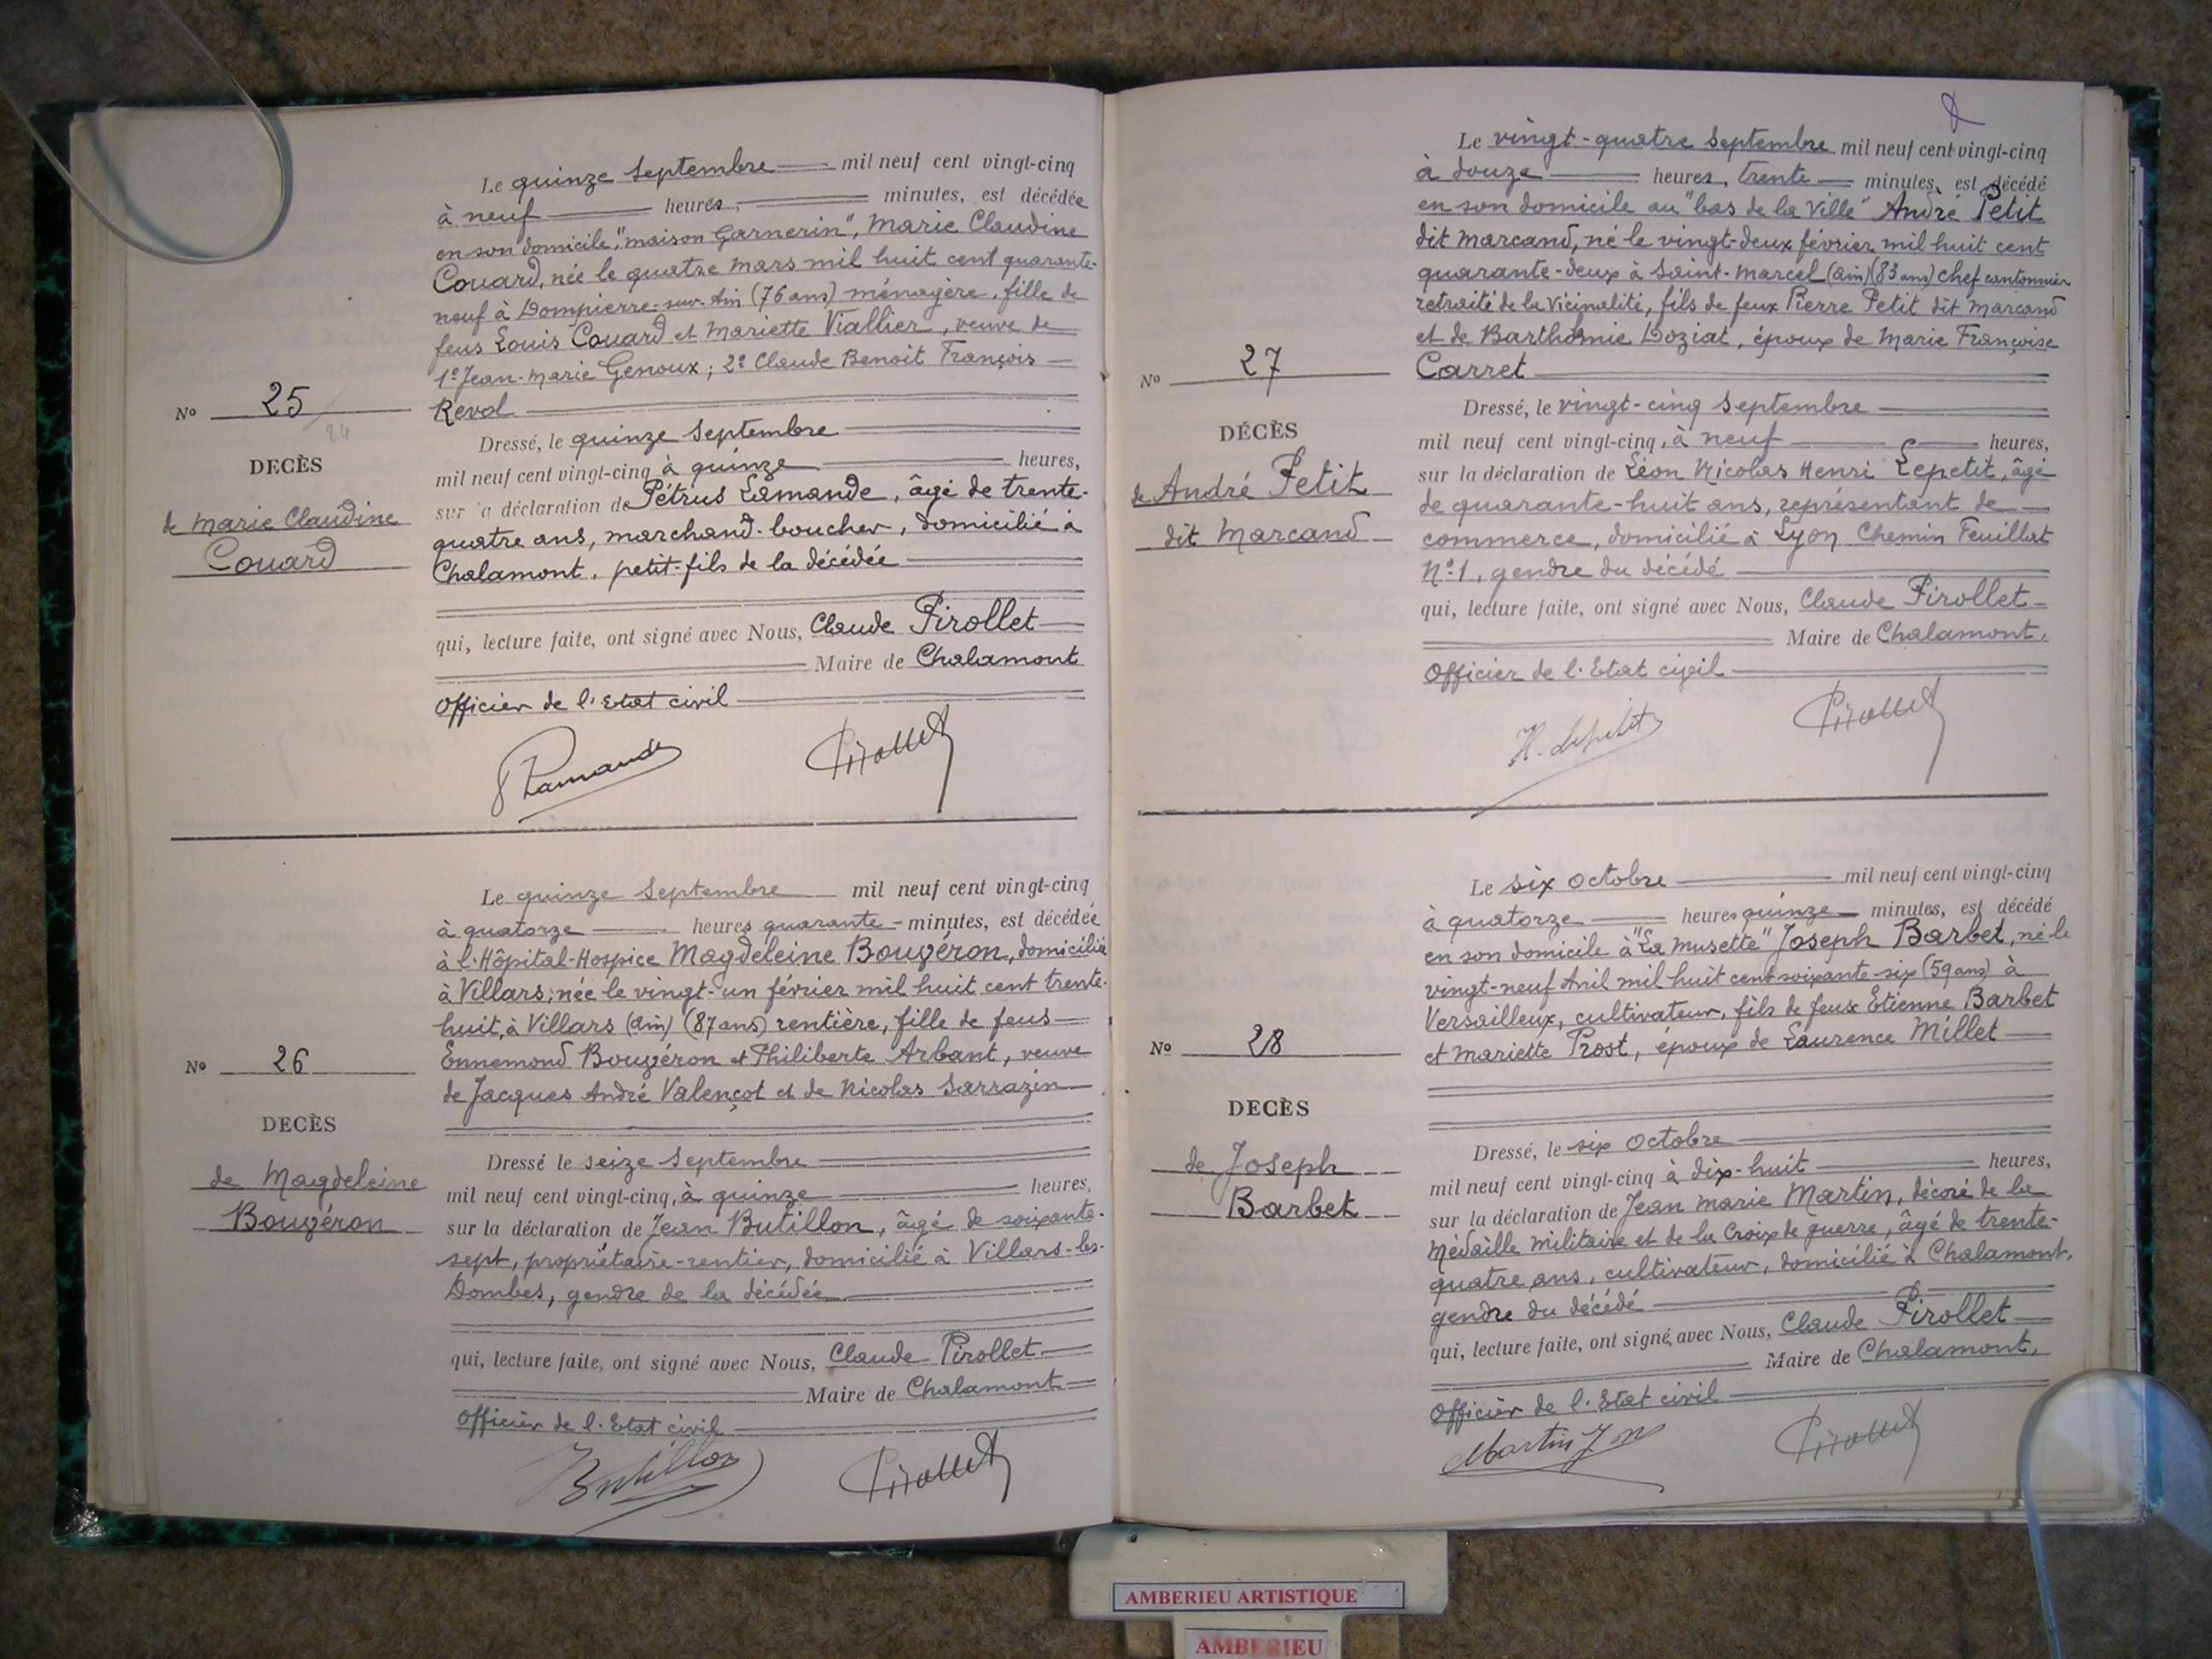 Le quinze Septembre mil neuf cent vingt-cinq
à neuf heures, minutes, est décédée
en son domicile, "maison Garnerin", Marie Claudine
Couard, née le quatre mars mil huit cent quarante-
neuf à Dompierre-sur-Ain (76 ans) ménagère, fille de
feus Louis Couard et Mariette Viallier, veuve de
1º Jean-Marie Genoux; 2º Claude Benoit François
Revol
Nº 25
24
DECÈS
de Marie Claudine
Couard
Dressé, le quinze Septembre
mil neuf cent vingt-cinq à quinze heures,
sur a déclaration de Pétrus Lamande, âgé de trente-
quatre ans, marchand-boucher, domicilié à
Chalamont, petit-fils de la décédée
qui, lecture faite, ont signé avec Nous, Claude Pirollet
Maire de Chalamont
Officier de l'Etat civil
PLamande Pirollet
Le quinze Septembre mil neuf cent vingt-cinq
à quatorze heures quarante - minutes, est décédée
à l'Hôpital-Hospice Magdeleine Bougéron, domiciliée
à Villars, née le vingt-un février mil huit cent trente-
huit, à Villars (Ain) (87 ans) rentière, fille de feus
Ennemond Bougéron et Philiberte Arbant, veuve
de Jacques André Valençot et de Nicolas Sarrazin
Nº 26
DECÈS
de Magdeleine
Bougéron
Dressé le seize Septembre
mil neuf cent vingt-cinq, à quinze heures,
sur la déclaration de Jean Butillon, âgé de soixante-
sept, propriétaire-rentier, domicilié à Villars-les-
Dombes, gendre de la décédée
qui, lecture faite, ont signé avec Nous, Claude Pirollet
Maire de Chalamont
Officier de l'Etat civil
Butillon Pirollet
Le vingt-quatre Septembre mil neuf cent vingt-cinq
à douze heures, trente minutes, est décédé
en son domicile au "bas de la Ville" André Petit
dit Marcand, né le vingt-deux février mil huit cent
quarante-deux à Saint-Marcel (Ain) (83 ans) chef cantonnier
retraité de la Vicinalité, fils de feux Pierre Petit dit Marcand
et de Barthomie Doziat, époux de Marie Françoise
Carret
Nº 27
DÉCÈS
de André Petit
dit Marcand
Dressé, le vingt-cinq Septembre
mil neuf cent vingt-cinq, à neuf heures,
sur la déclaration de Léon Nicolas Henri Lepetit, âgé
de quarante-huit ans, représentant de
commerce, domicilié à Lyon Chemin Feuillat
Nº 1, gendre du décédé
qui, lecture faite, ont signé avec Nous, Claude Pirollet
Maire de Chalamont,
Officier de l'Etat civil
H. Lepetit Pirollet
Le six Octobre mil neuf cent vingt-cinq
à quatorze heures quinze minutes, est décédé
en son domicile à "La Musette" Joseph Barbet, né le
vingt-neuf Avril mil huit cent soixante-six (59 ans) à
Versailleux, cultivateur, fils de feux Etienne Barbet
et Mariette Prost, époux de Laurence Millet
Nº 28
DECÈS
de Joseph
Barbet
Dressé, le six Octobre
mil neuf cent vingt-cinq à dix-huit heures,
sur la déclaration de Jean Marie Martin, décoré de la
Médaille Militaire et de la Croix de guerre, âgé de trente-
quatre ans, cultivateur, domicilié à Chalamont,
gendre du décédé
qui, lecture faite, ont signé avec Nous, Claude Pirollet
Maire de Chalamont,
Officier de l'Etat civil
Martin J M Pirollet
AMBERIEU ARTISTIQUE
AMBERIEU